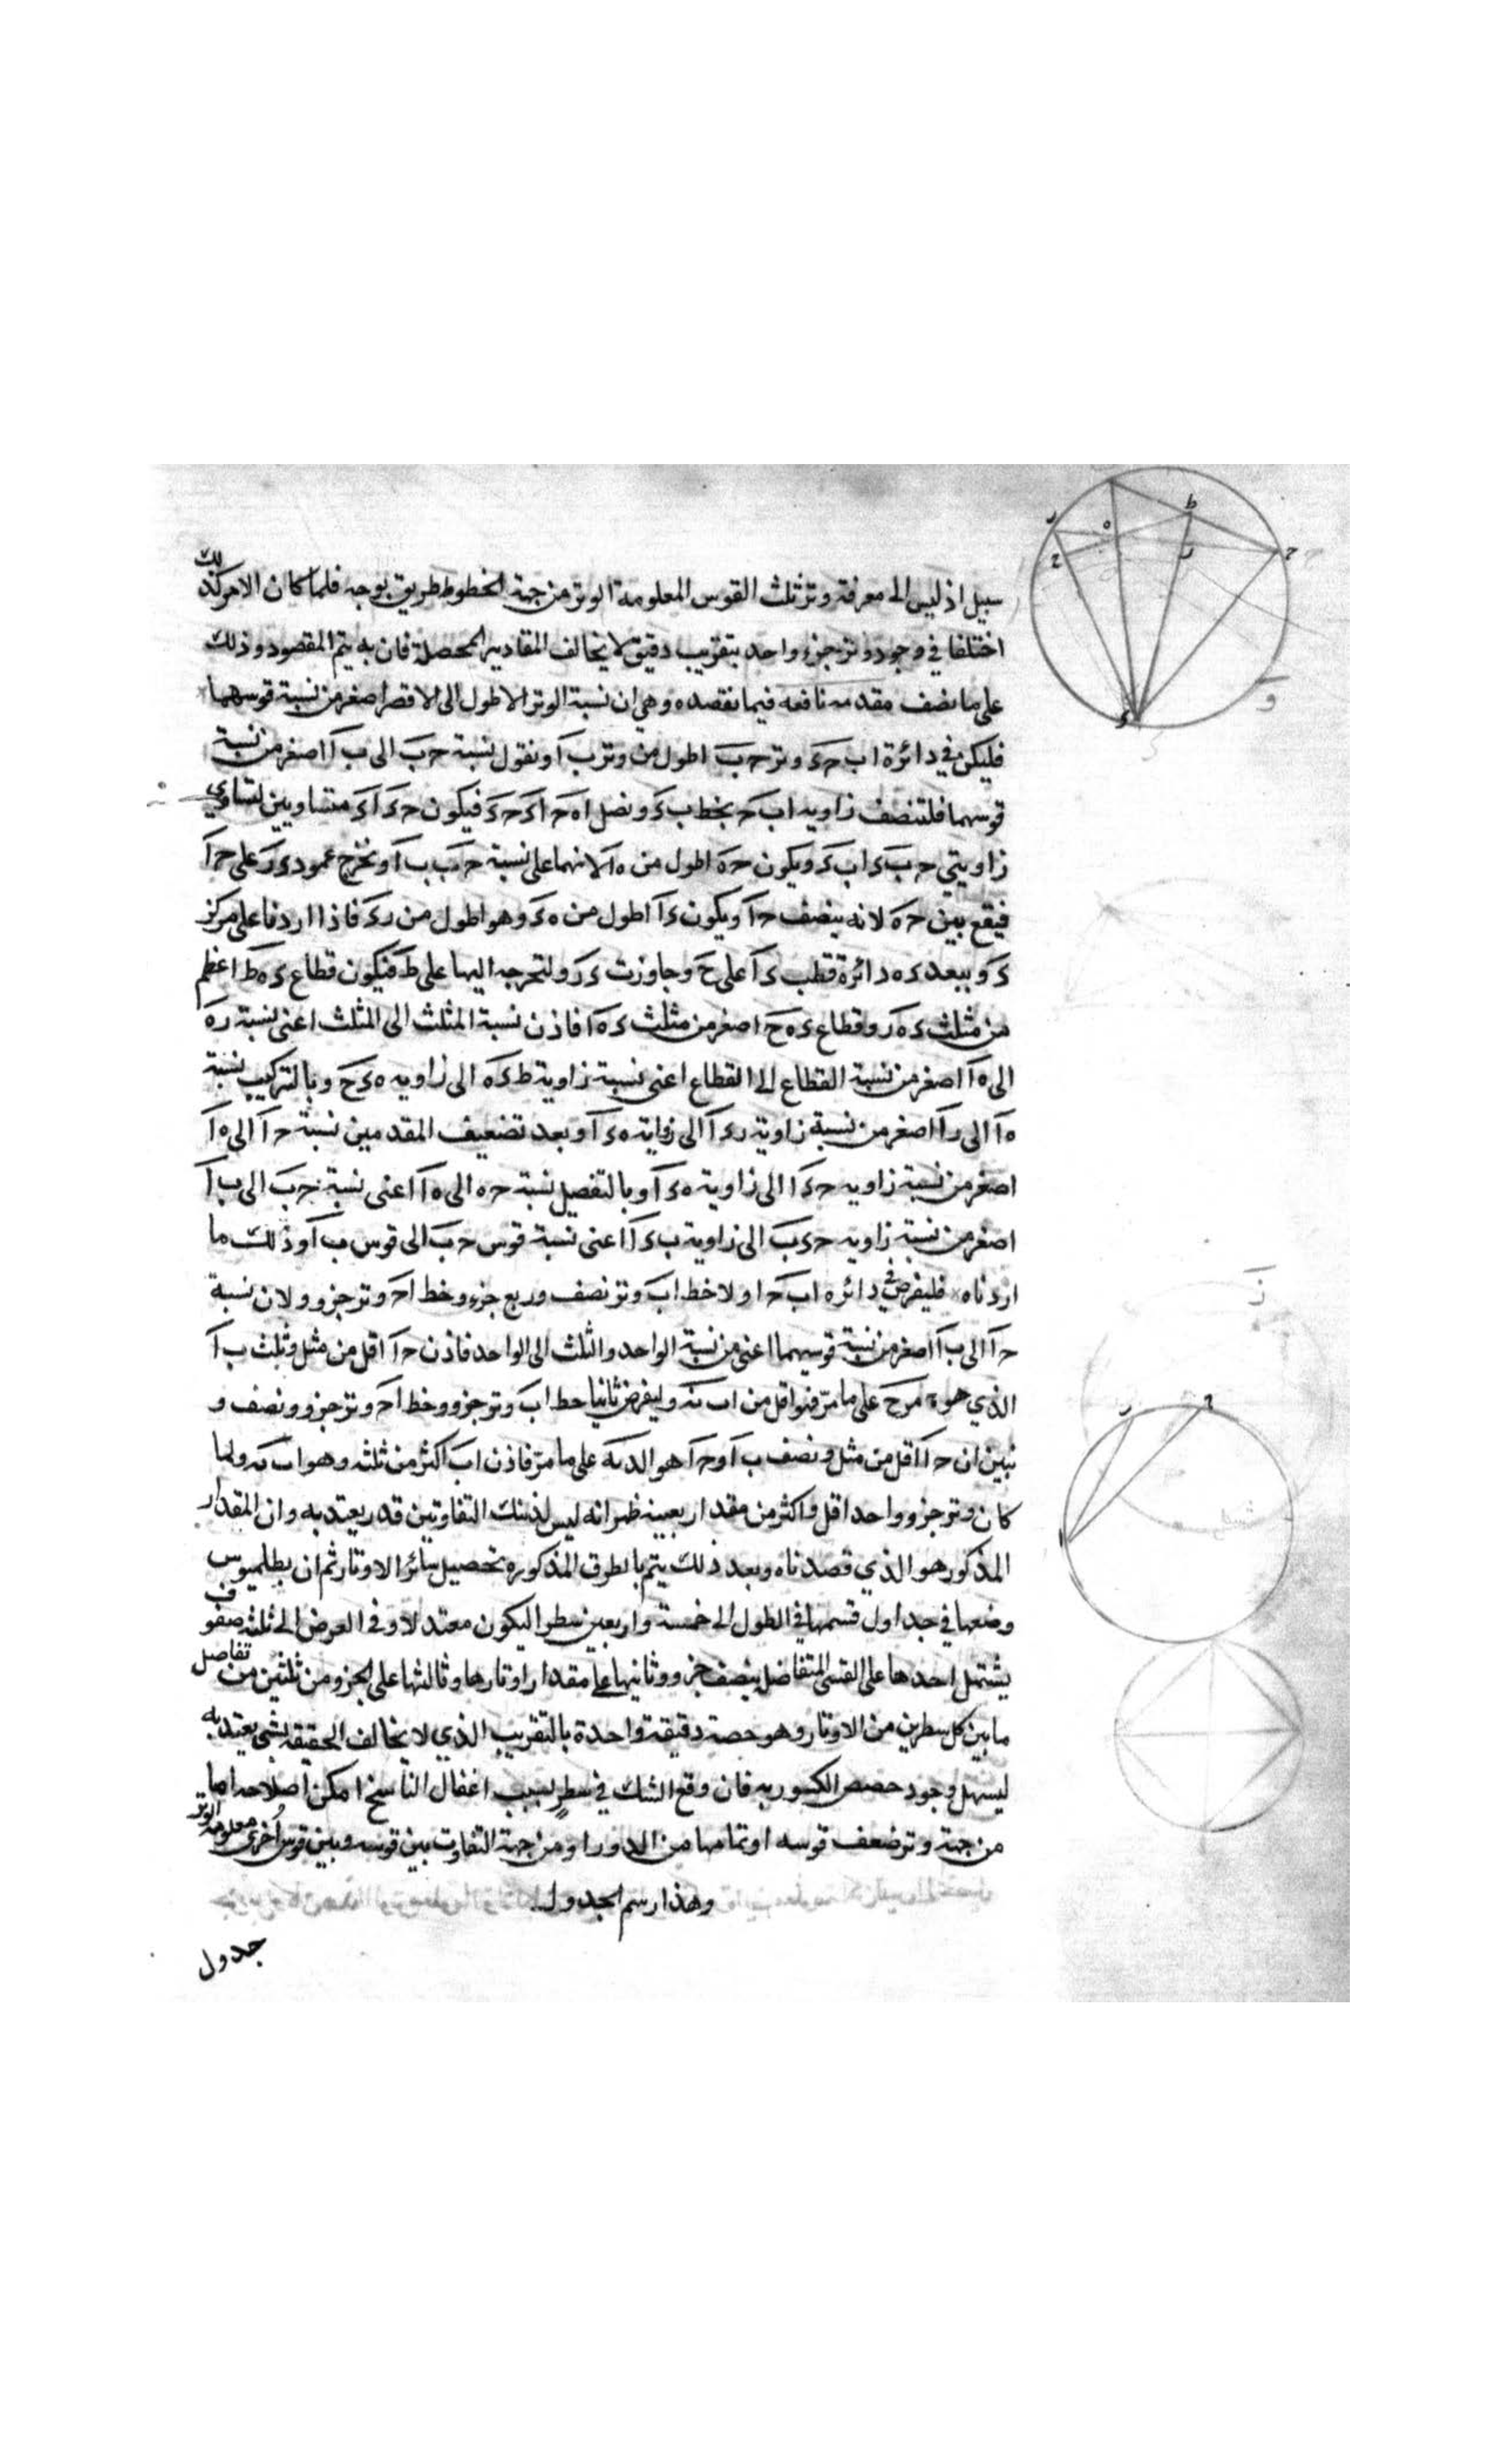 سبيل اذ ليس الى معرفة وتر ثلث القوس المعلومة الوتر من جهة الخطوط طريق بوجه فلما كان الامر كذلك
اختلفا في وجود وتر جزء واحد بتقريب دقيق لا يخالف المقادير المحصلة فان به يتم المقصود وذلك
على ما نصف مقدمه نافعه فيما نقصده وهي ان نسبة الوتر الاطول الى الاقصر اصغر من نسبة قوسهما
فليكن في دائرة ا ب حـ ء وتر حـ ب اطول من وتر ب ا ونقول نسبة حـ ب الى ب ا اصغر من نسبة
قوسهما فلننصف زاويه ا ب حـ بخط ب ء ونصل ا ه حـ ا ء حـ ء فيكون حـ ء ا ء متساويين لتساوي
زاويتي حـ ب ء ا ب ء ويكون حـ ه اطول من ه ا لانهما على نسبة حـ ب ب ا ونخرج عمود ء ر على حـ ا
فيقع بين حـ ه لانه ينصف حـ ا ويكون ء ا اطول من ه ء وهو اطول من ر ء فاذا ادرنا على مركز
ء وببعد ء ه دائرة قطعت ء ا على ح وجاوزت ء ر ولنخرجه اليها على ط فيكون قطاع ء ه ط اعظم
من مثلث ء ه ر وقطاع ء ه ح اصغر من مثلث ء ه ا فاذن نسبة المثلث الى المثلث اعني نسبة ر ه
الى ه ا اصغر من نسبة القطاع الى القطاع اعني نسبة زاوية ط ء ه الى زاويه ه ء ح وبالتركيب نسبة
ه ا الى ر ا اصغر من نسبة زاوية ر ء ا الى زواية ه ء ا وبعد تضعيف المقدمين نسبة حـ ا الى ه ا
اصغر من نسبة زاويه حـ ء ا الى زاويه ه ء ا وبالتفصيل نسبة حـ ه الى ه ا اعني نسبة حـ ب الى ب ا
اصغر من نسبة زاويه حـ ء ب الى زاوية ب ء ا اعني نسبة قوس حـ ب الى قوس ب ا وذلك ما
اردناه فليفرض في دائره ا ب حـ اولا خط ا ب وتر نصف وربع جزء وخط ا حـ وتر جزو ولان نسبة
حـ ا الى ب ا اصغر من نسبة قوسيهما اعني من نسبة الواحد والثلث الى الواحد فاذن حـ ا اقل من مثل وثلث ب ا
الذي هو ه مر ح على ما مر فهو اقل من ا ب نه وليفرض ثانيا خط ا ب وتر جزو وخط ا حـ وتر جزو ونصف و
نبين ان حـ ا اقل من مثل ونصف ب ا و حـ ا هو الد نه على ما مر فاذن ا ب اكثر من ثلثه وهو ا ب نه ولما
كان وتر جزو واحد اقل واكثر من مقدار بعينه ظهر انه ليس لذينك التفاوتين قدر يعتد به وان المقدار
المذكور هو الذي قصدناه وبعد ذلك يتم بالطرق المذكوره تحصيل سائر الاوتار ثم ان بطلميوس
وضعها في جداول قسمها في الطول الى خمسة واربعين سطرا ليكون معتدلا وفي العرض الى ثلثه صفوف
يشتمل احدها على القسى المتفاضل بنصف جزو وثانيها على مقدار اوتارها وثالثها على الجزو من ثلثين من تفاضل
ما بين كل سطرين من الاوتار وهو حصة دقيقة واحدة بالتقريب الذي لا يخالف الحقيقه بشى يعتد به
ليسهل وجود حصص الكسور به فان وقع الشك في سطر بسبب اغفال الناسخ امكن اصلاحه اما
من جهة وتر ضعف قوسه او تمامها من الدور او من جهة التفاوت بين قوسه وبين قوس اخرى معلومة الوتر
وهذا رسم الجدول
جدول